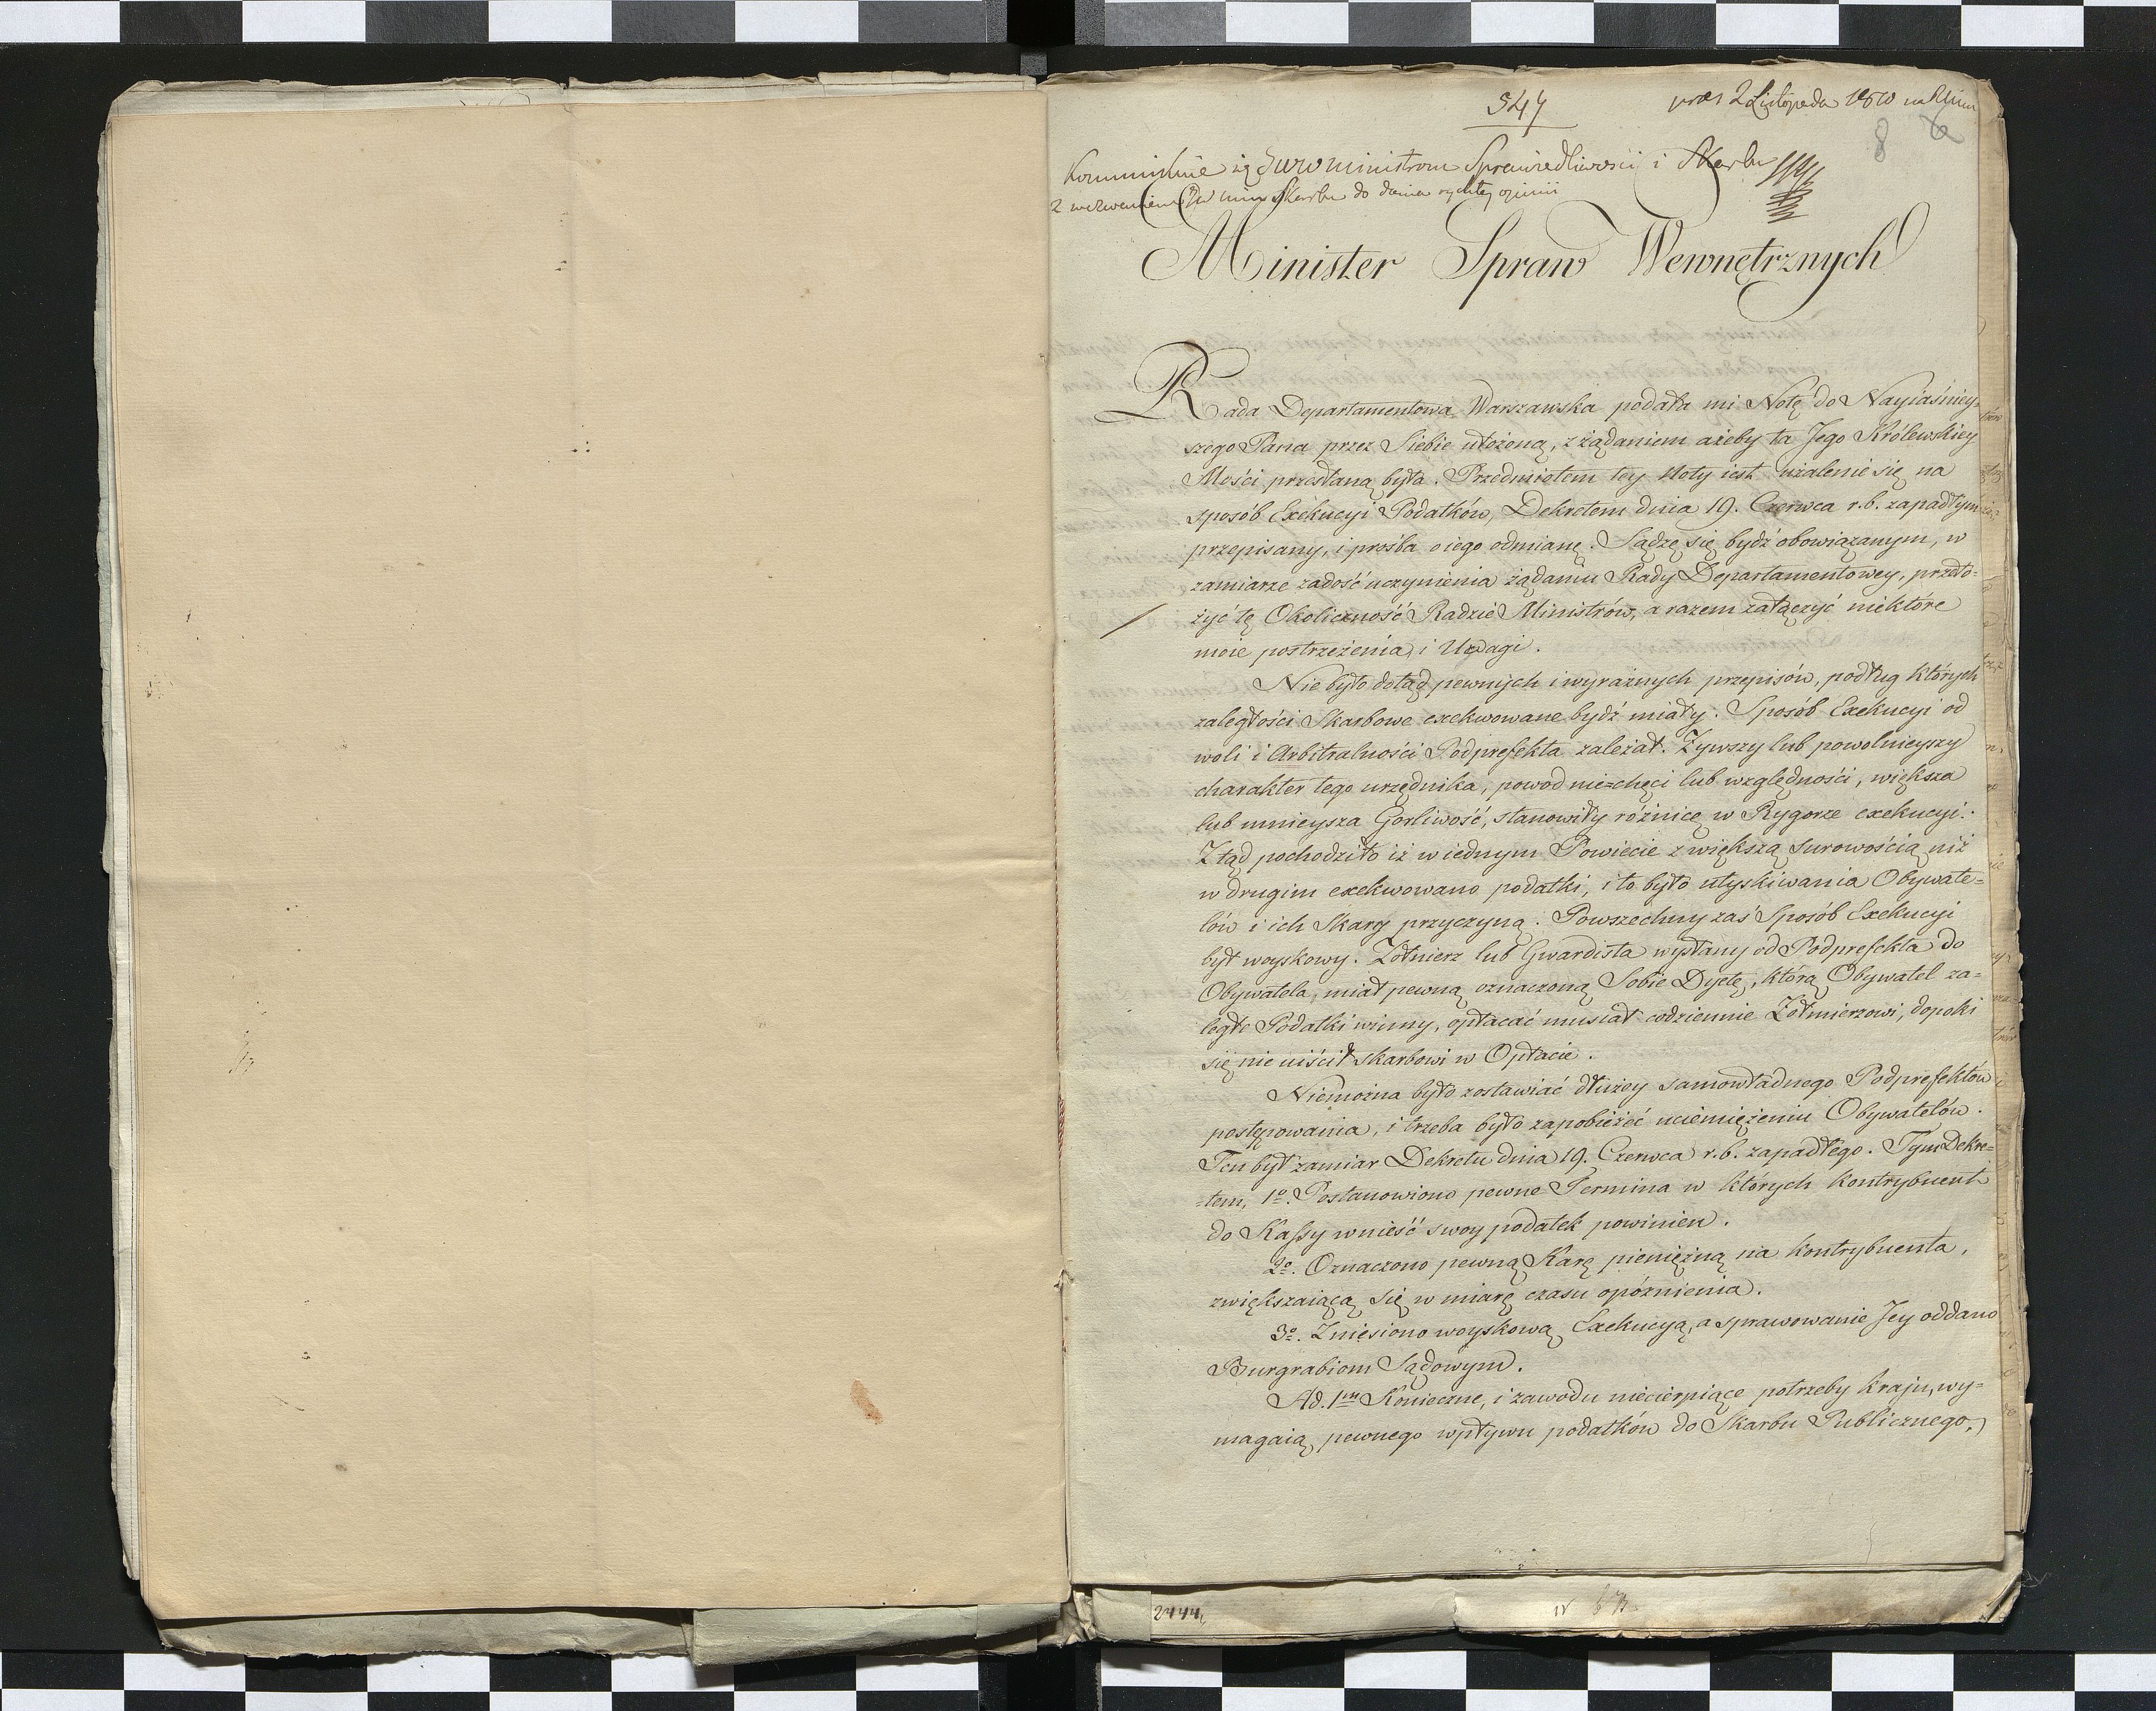 547
pres 2 Listopada 1810
8
Kommunikuie się JWW ministrom Sprawiedliwości i Skarbu
z wezwaniem JW min Skarbu do dania rychłey opinii
Minister Spraw Wewnętrznych
Rada Departamentowa Warszawska podała mi Notę do Nayiaśniey-
szego Pana przez Siebie ułożoną, z żądaniem ażeby ta Jego Królewskiey
Mości przesłaną była. Przedmiotem tey Noty iest użalenie się na
sposób Exekucyi Podatków, Dekretem dnia 19. Czerwca r.b. zapadłym
przepisany, i prośba o iego odmianę. Sądzę się bydź obowiązanym, w
zamiarze zadość uczynienia żądaniu Rady Departamentowey, przeło-
żyć tę Okoliczność Radzie Ministrów, a razem załączyć niektóre
moie postrzeżenia i Uwagi.
Nie było dotąd pewnych i wyraźnych przepisów, podług których
zaległości Skarbowe exekwowane bydź miały. Sposób Exekucyi od
woli i Arbitralności Podprefekta zależał. Żywszy lub powolnieyszy
charakter tego urzędnika, powod nie=chęci lub względności, większa
lub mnieysza Gorliwość, stanowiły różnicę w Rygorze exekucyi.
Ztąd pochodziło iż w iednym Powiecie z większą surowością niż
w drugim exekwowano podatki, i to było utyskiwania Obywate-
lów i ich Skarg przyczyną. Powszechny zaś Sposób Exekucyi
był woyskowy. Żołnierz lub Gwardista wysłany od Podprefekta do
Obywatela, miał pewną oznaczoną Sobie Dyetę, którą Obywatel za-
ległe Podatki winny, opłacać musiał codziennie Żołnierzowi, dopoki
się nie uiścił skarbowi w Opłacie.
Niemożna było zostawiać dłużey samowładnego Podprefektów
postępowania, i trzeba było zapobieżeć uciemiężeniu Obywatelów.
Ten był zamiar Dekretu dnia 19. Czerwca r.b. zapadłego. Tym Dekre-
=tem, 1o. Postanowiono pewne Termina w których Kontrybuent
do Kassy wnieść swoy podatek powinien.
2o. Oznaczono pewną Karę pieniężną na Kontrybuenta,
zwiększaiącą się w miarę czasu opóźnienia.
3o. Zniesiono woyskową Exekucyą, a sprawowanie Jey oddano
Burgrabiom Sądowym.
Ad. 1um Konieczne, i zawodu niecierpiące potrzeby kraju, wy-
magaią pewnego wpływu podatków do Skarbu Publicznego,
2444